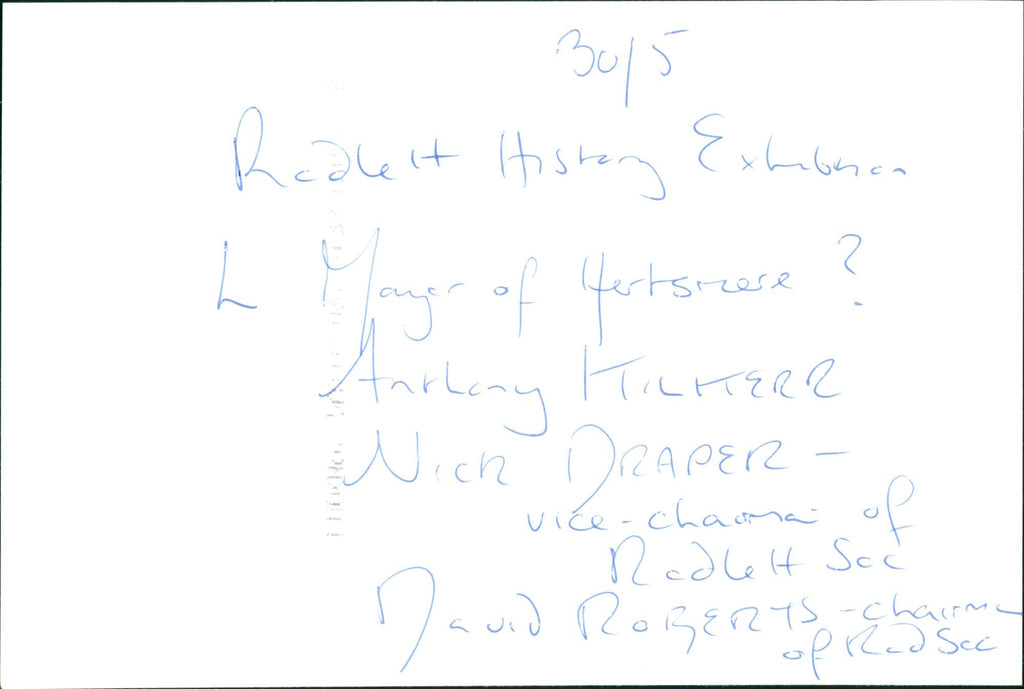 30/5
Radlett History Exhibition
L Mayor of Hertsmere ?
Anthony
Nick DRAPER -
vice-chairman of
Radlett Soc
David ROBERTS - chairman
of Rad Soc